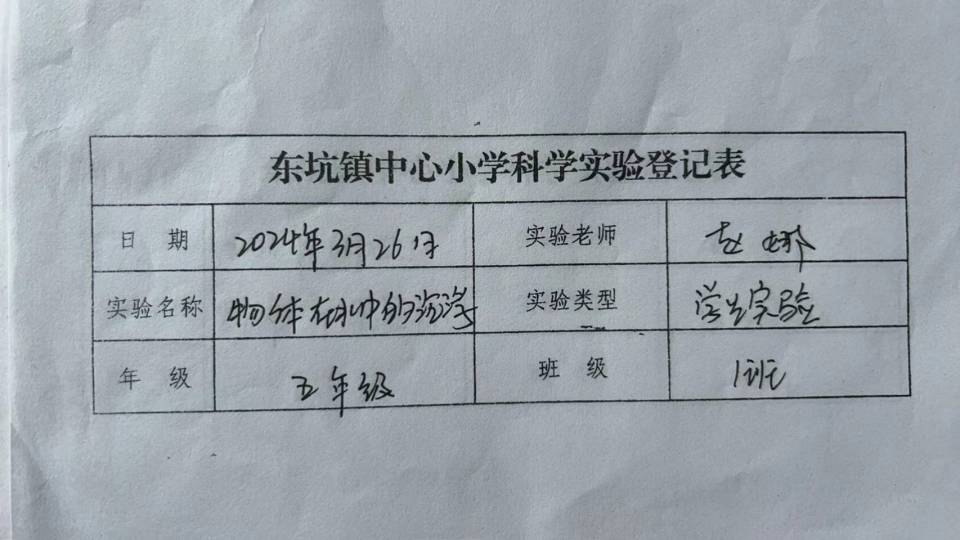 东坑镇中心小学科学实验登记表
日 期 2024年3月26日 实验老师 赵娜
实验名称 物体在水中的沉浮 实验类型 学生实验
年 级 五年级 班 级 1班